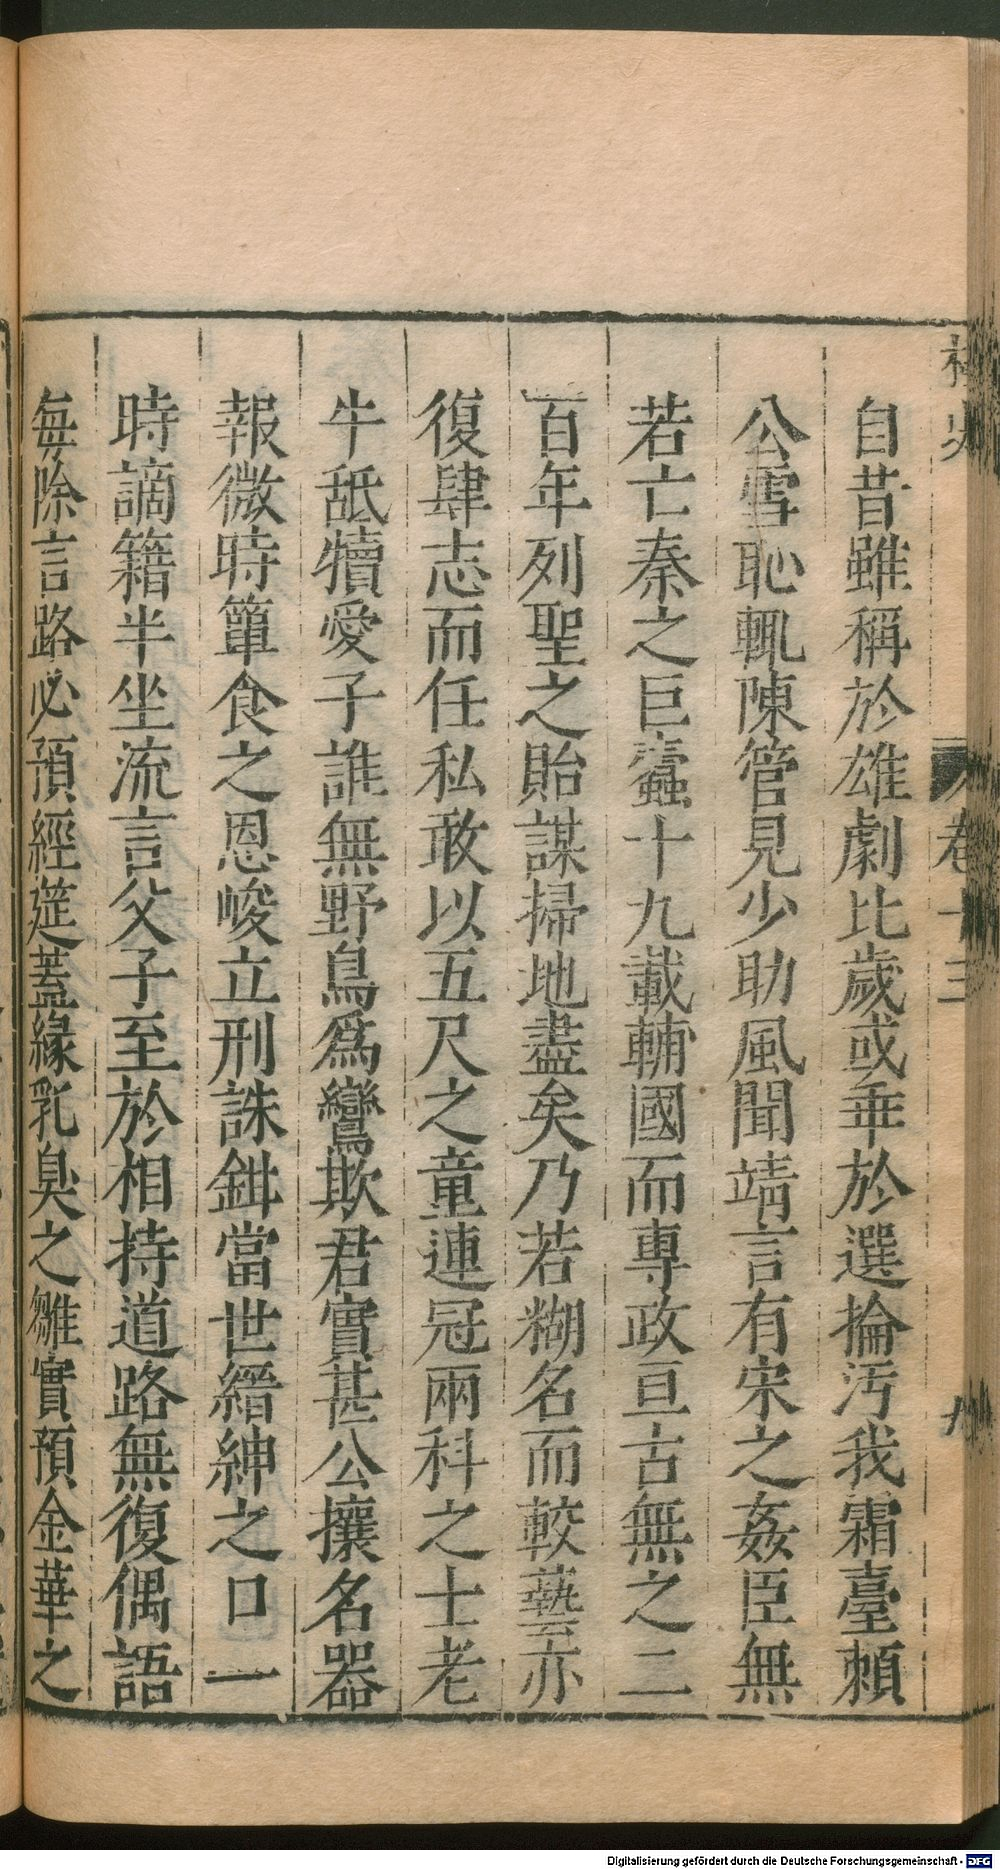 自昔雖稱於雄劇比歲或乖於選掄汚我霜臺賴
公雪恥輒陳管見少助風聞靖言有宋之姦臣無
若亡秦之巨蠹十九載輔國而專政亘古無之二
百年列聖之貽謀掃地盡矣乃若糊名而較藝亦
復肆志而任私敢以五尺之童連冠兩科之士老
牛舐犢愛子誰無野鳥爲鸞欺君實甚公攘名器
報微時簞食之恩峻立刑誅鉗當世縉紳之口一
時謫籍半坐流言父子至於相持道路無復偶語
每除言路必預經筵蓋緣乳臭之雛實預金華之
卷十三
Digitalisierung gefördert durch die Deutsche Forschungsgemeinschaft - DFG